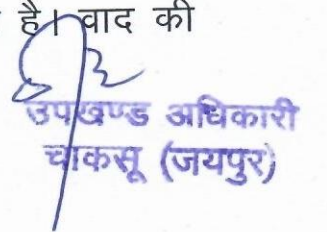 है। वाद की
उपखण्ड अधिकारी
चाकसू (जयपुर)